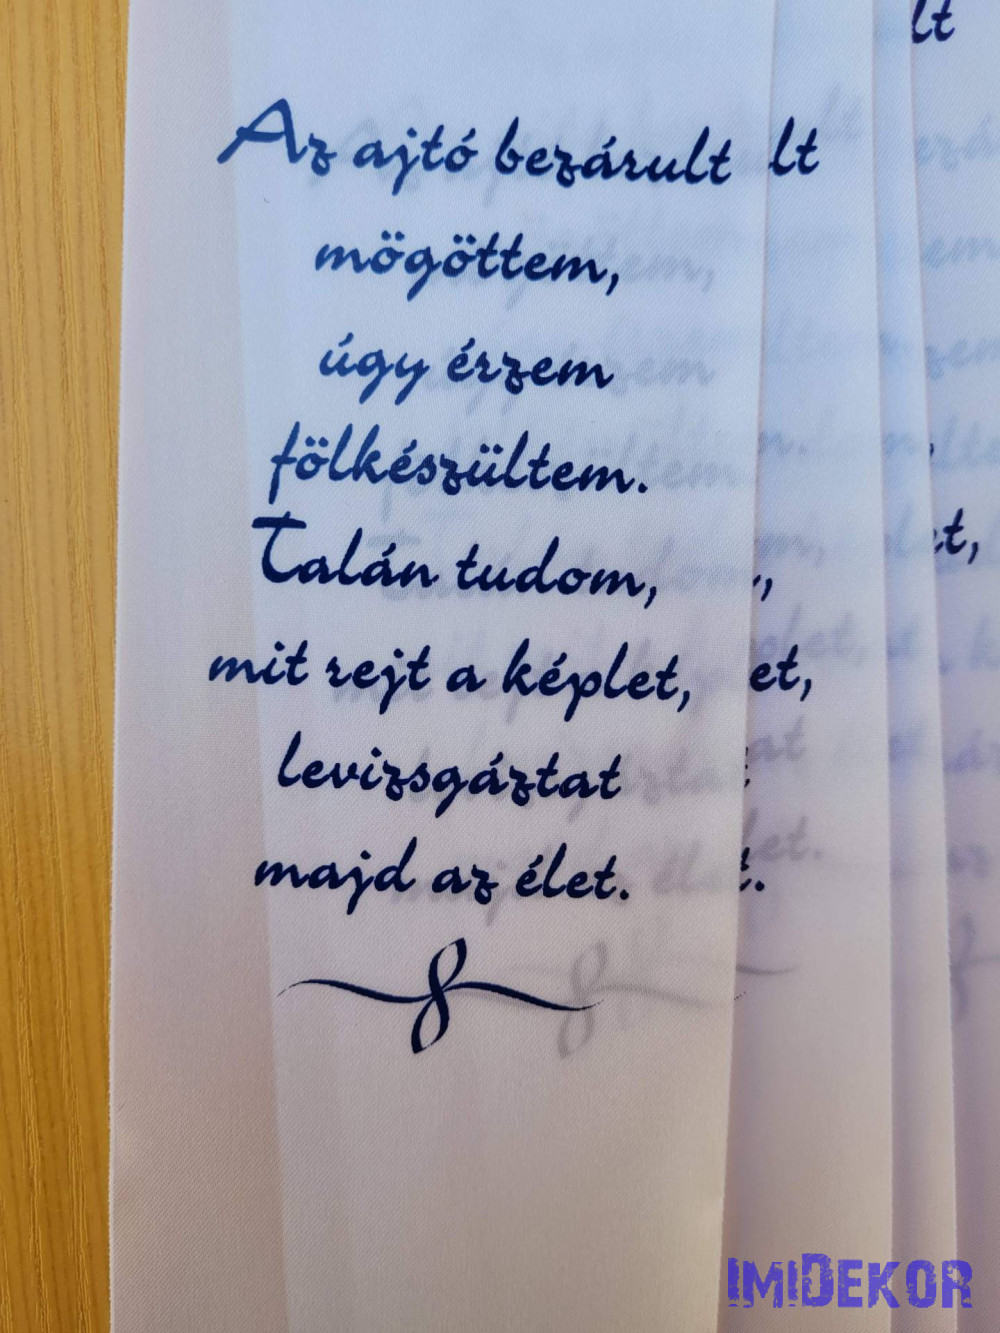 Az ajtó bezárult
mögöttem,
úgy érzem
fölkészültem.
Talán tudom,
mit rejt a képlet,
levizsgáztat
majd az élet.
IMIDEKOR